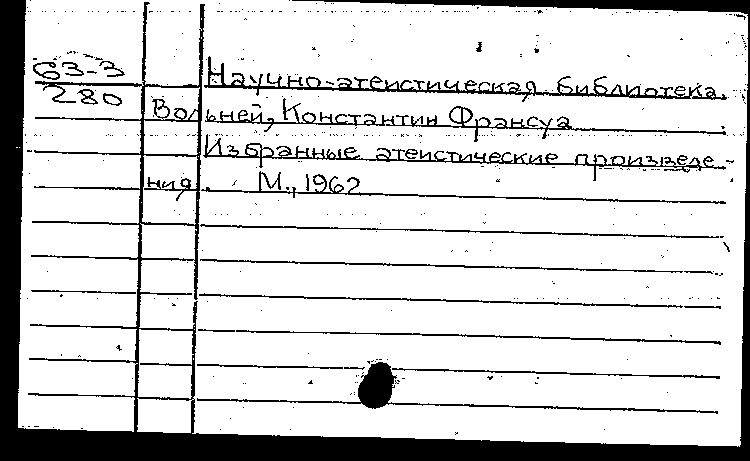 63-3
280
Научно-атеистическая библиотека.
Вольней, Константин Франсуа
Избранные атеистические произведе-
ния. М., 1962